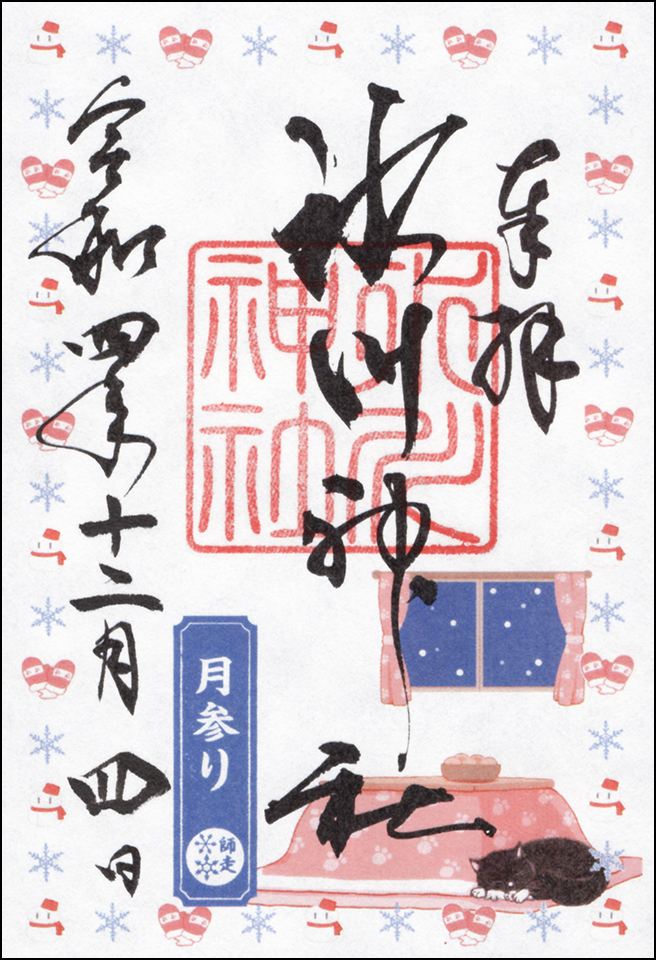 奉拝
氷川神社
氷川
神社
令和四年十二月四日
月参り
師走